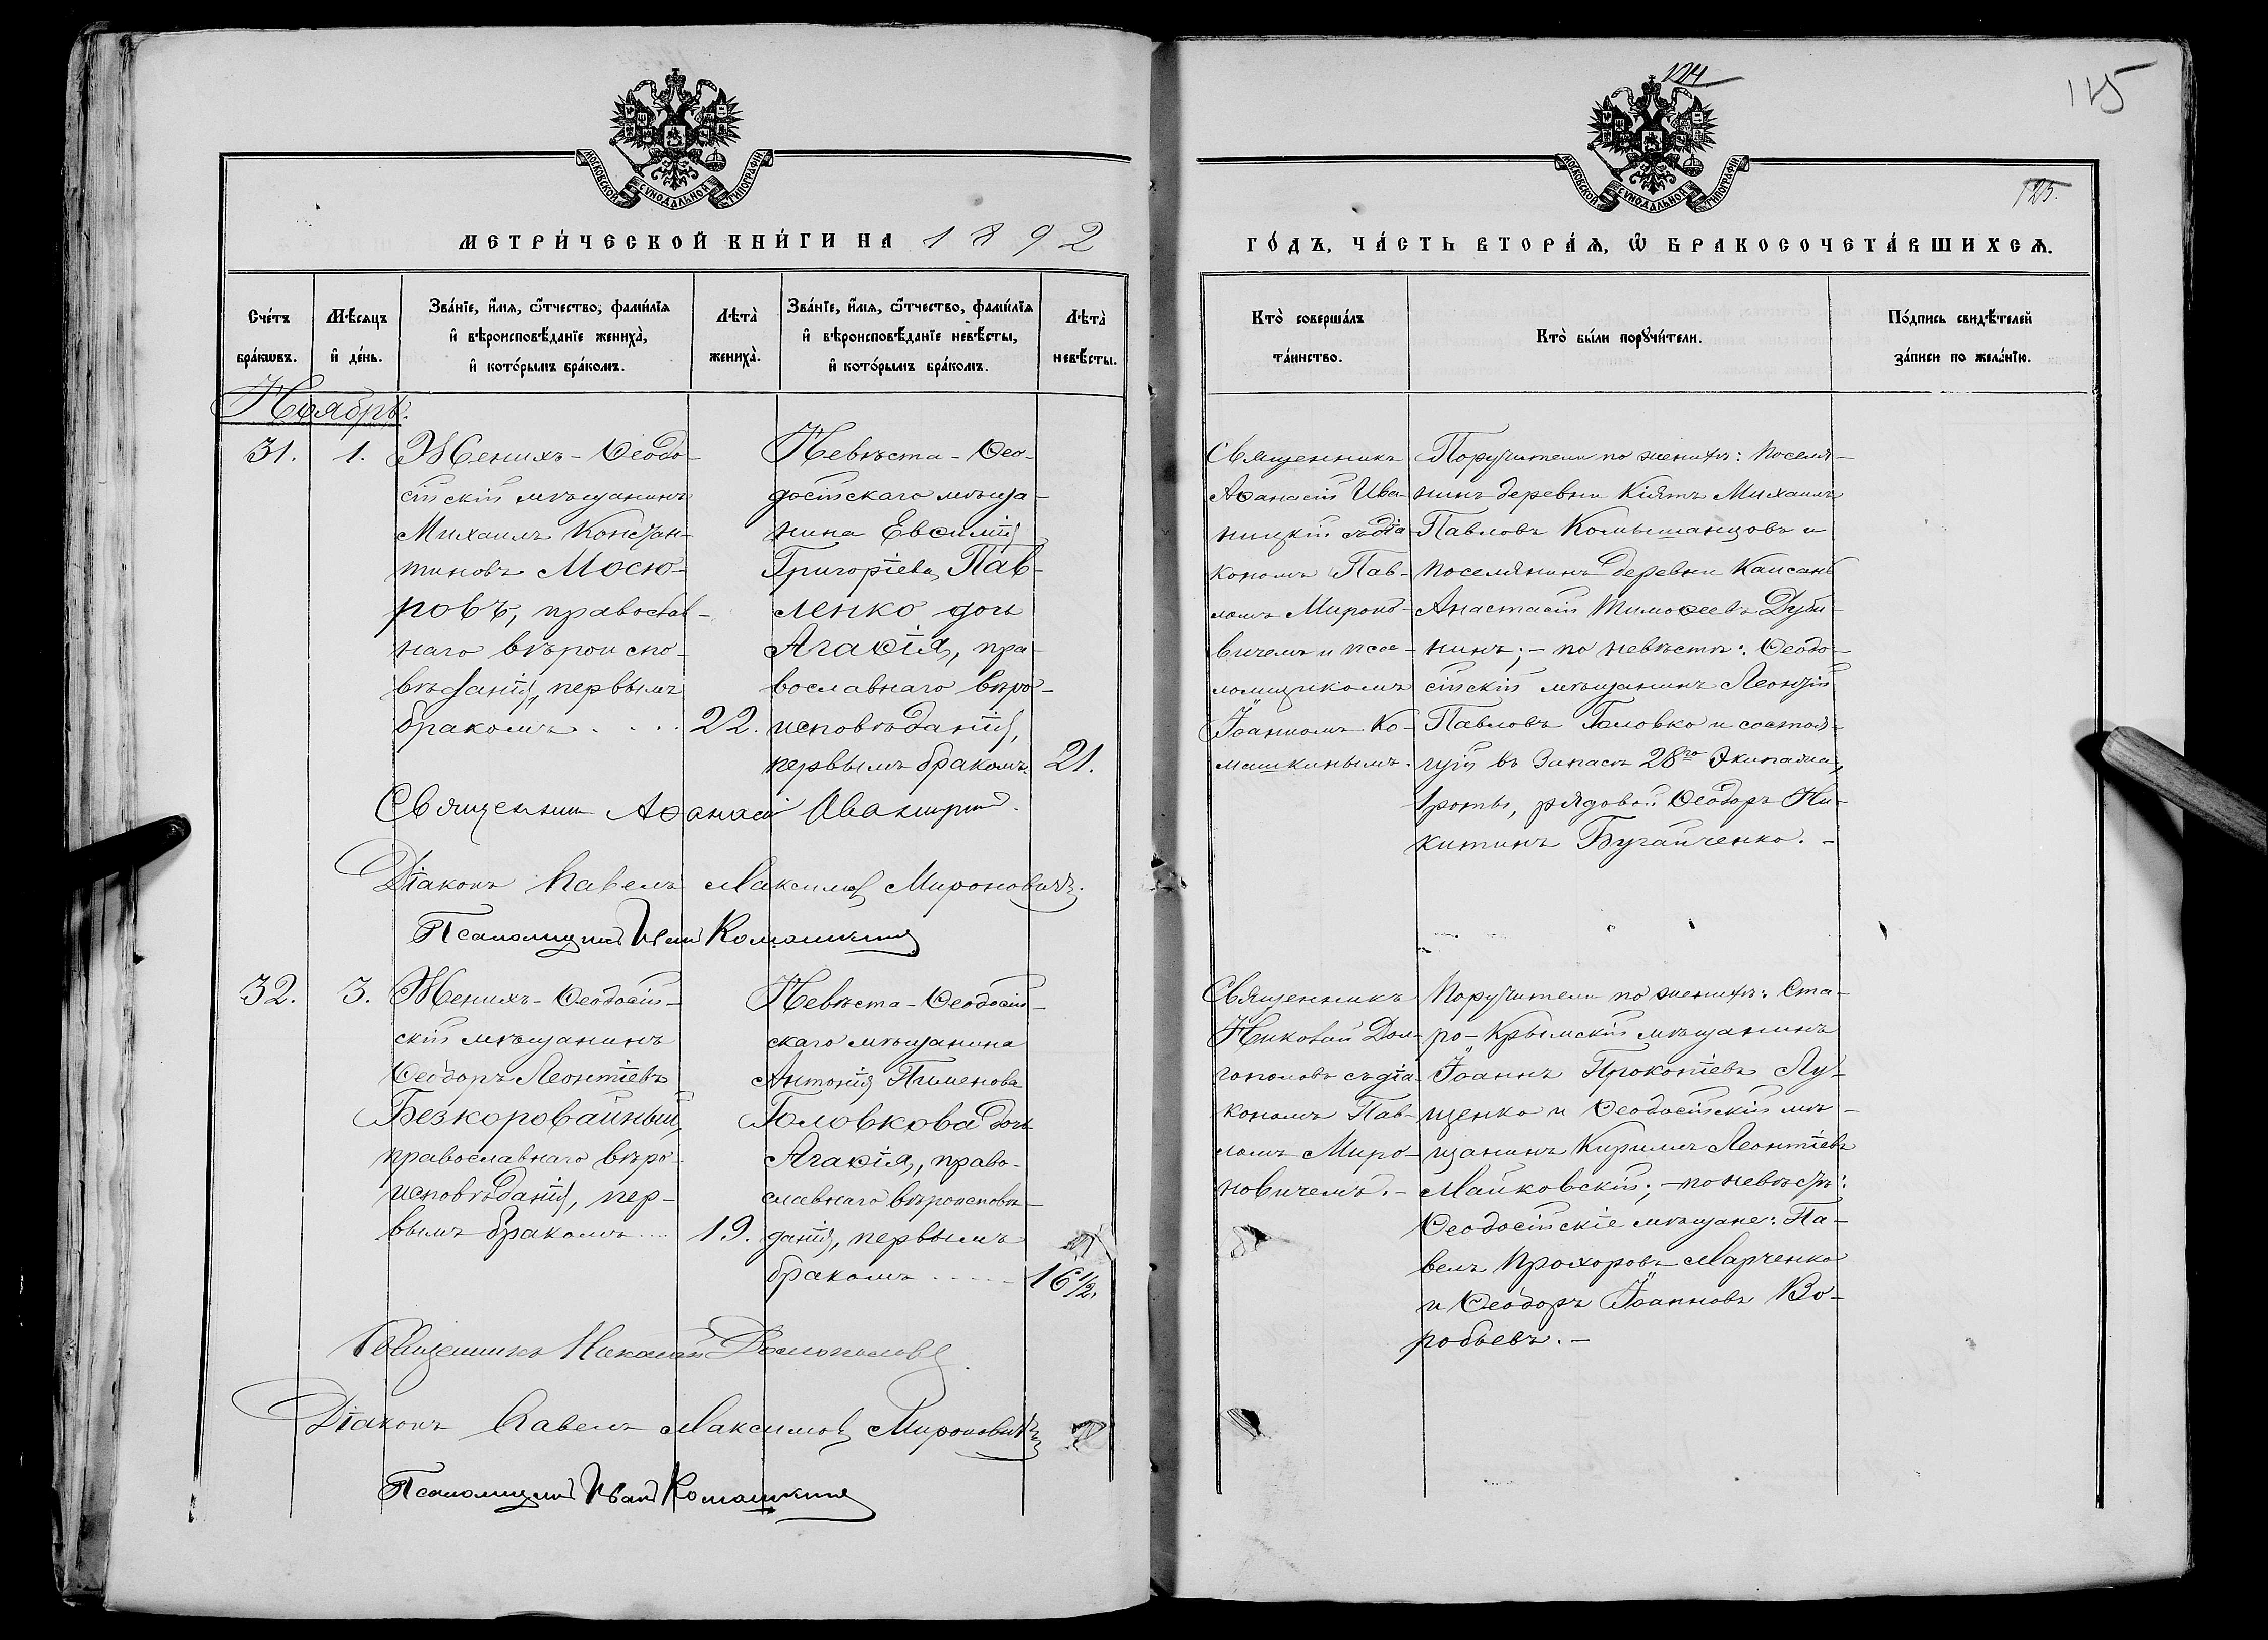 МОСКОВСКОЙ СѴНОДАЛЬНОЙ ТИПОГРАФІИ
МЕТРИ́ЧЕСКОЙ КНИ́ГИ НА 1892
Сче́тъ бра́кωвъ.
Мѣ́сяцъ и҆ де́нь.
Зва́нїе, и҆́мѧ, ѻ҆́тчество, фами́лїѧ
и҆ вѣроисповѣ́данїе жениха̀,
и҆ кото́рымъ бра́комъ.
Лѣта̀ жениха̀.
Зва́нїе, и҆́мѧ, ѻ҆́тчество, фами́лїѧ
и҆ вѣроисповѣ́данїе невѣ́сты,
и҆ кото́рымъ бра́комъ.
Лѣта̀ невѣ́сты.
Ноябрь.
31.
1.
Женихъ - Ѳеодо-
сійскій мѣщанинъ
Михаилъ Констан-
тиновъ Мосю-
ровъ, православ-
наго вѣроиспо-
вѣданія, первымъ
бракомъ . . . .
22.
Невѣста - Ѳео-
досійскаго мѣща-
нина Евѳимія
Григоріева Пав-
ленко дочь
Агаѳія, пра-
вославнаго вѣро-
исповѣданія,
первымъ бракомъ.
21.
Священник Аѳанасій Иваницкій.
Діаконъ Павелъ Максимовъ Мироновичъ.
Псаломщикъ Иванъ Комашкинъ
32.
3.
Женихъ - Ѳеодосій-
скій мѣщанинъ
Ѳеодоръ Леонтіевъ
Безкоровайный,
православнаго вѣро-
исповѣданія, пер-
вымъ бракомъ ....
19.
Невѣста - Ѳеодосій-
скаго мѣщанина
Антонія Пименова
Головкова дочь
Агаѳія, право-
славнаго вѣроисповѣ-
данія, первымъ
бракомъ . . . . .
16 1/2.
Священникъ Николай Долгополовъ.
Діаконъ Павелъ Максимовъ Мироновичъ
Псаломщикъ Иванъ Комашкинъ
124
125
125.
МОСКОВСКОЙ СѴНОДАЛЬНОЙ ТИПОГРАФІИ
ГО́ДЪ, ЧА́СТЬ ВТОРА́Ѧ, Ѡ҆ БРАКОСОЧЕТА́ВШИХСѦ.
Кто̀ соверша́лъ
та́инство.
Кто̀ бы́ли порꙋчи́тели.
По́дпись свидѣ́телей
за́писи по жела́нїю.
Священникъ
Аѳанасій Ива-
ницкій съ діа-
кономъ Пав-
ломъ Мироно-
вичемъ и пса-
ломщикомъ
Іоанномъ Ко-
машкинымъ.
Поручители по женихѣ: поселя-
нинъ деревни Кіятъ Михаилъ
Павловъ Комышанцовъ и
поселянинъ деревни
Анастасій Тимоѳеевъ Дуби-
нинъ; - по невѣстѣ: Ѳеодо-
сійскій мѣщанинъ Леонтій
Павловъ Головко и состоя-
щій въ Запасѣ 28го Экипажа,
1 роты, рядовой Ѳеодоръ Ни-
китинъ Бугайченко. -
Священникъ
Николай Дол-
гополовъ съ діа-
кономъ Пав-
ломъ Миро-
новичемъ. -
Поручители по женихѣ: Ста-
ро-Крымскій мѣщанинъ
Іоаннъ Прокопіевъ Лу-
ценко и Ѳеодосійскій мѣ-
щанинъ Кириллъ Леонтіевъ
Майковскій; - по невѣстѣ:
Ѳеодосійскіе мѣщане: Па-
велъ Прохоровъ Марченко
и Ѳеодоръ Іоанновъ Во-
робьевъ. -